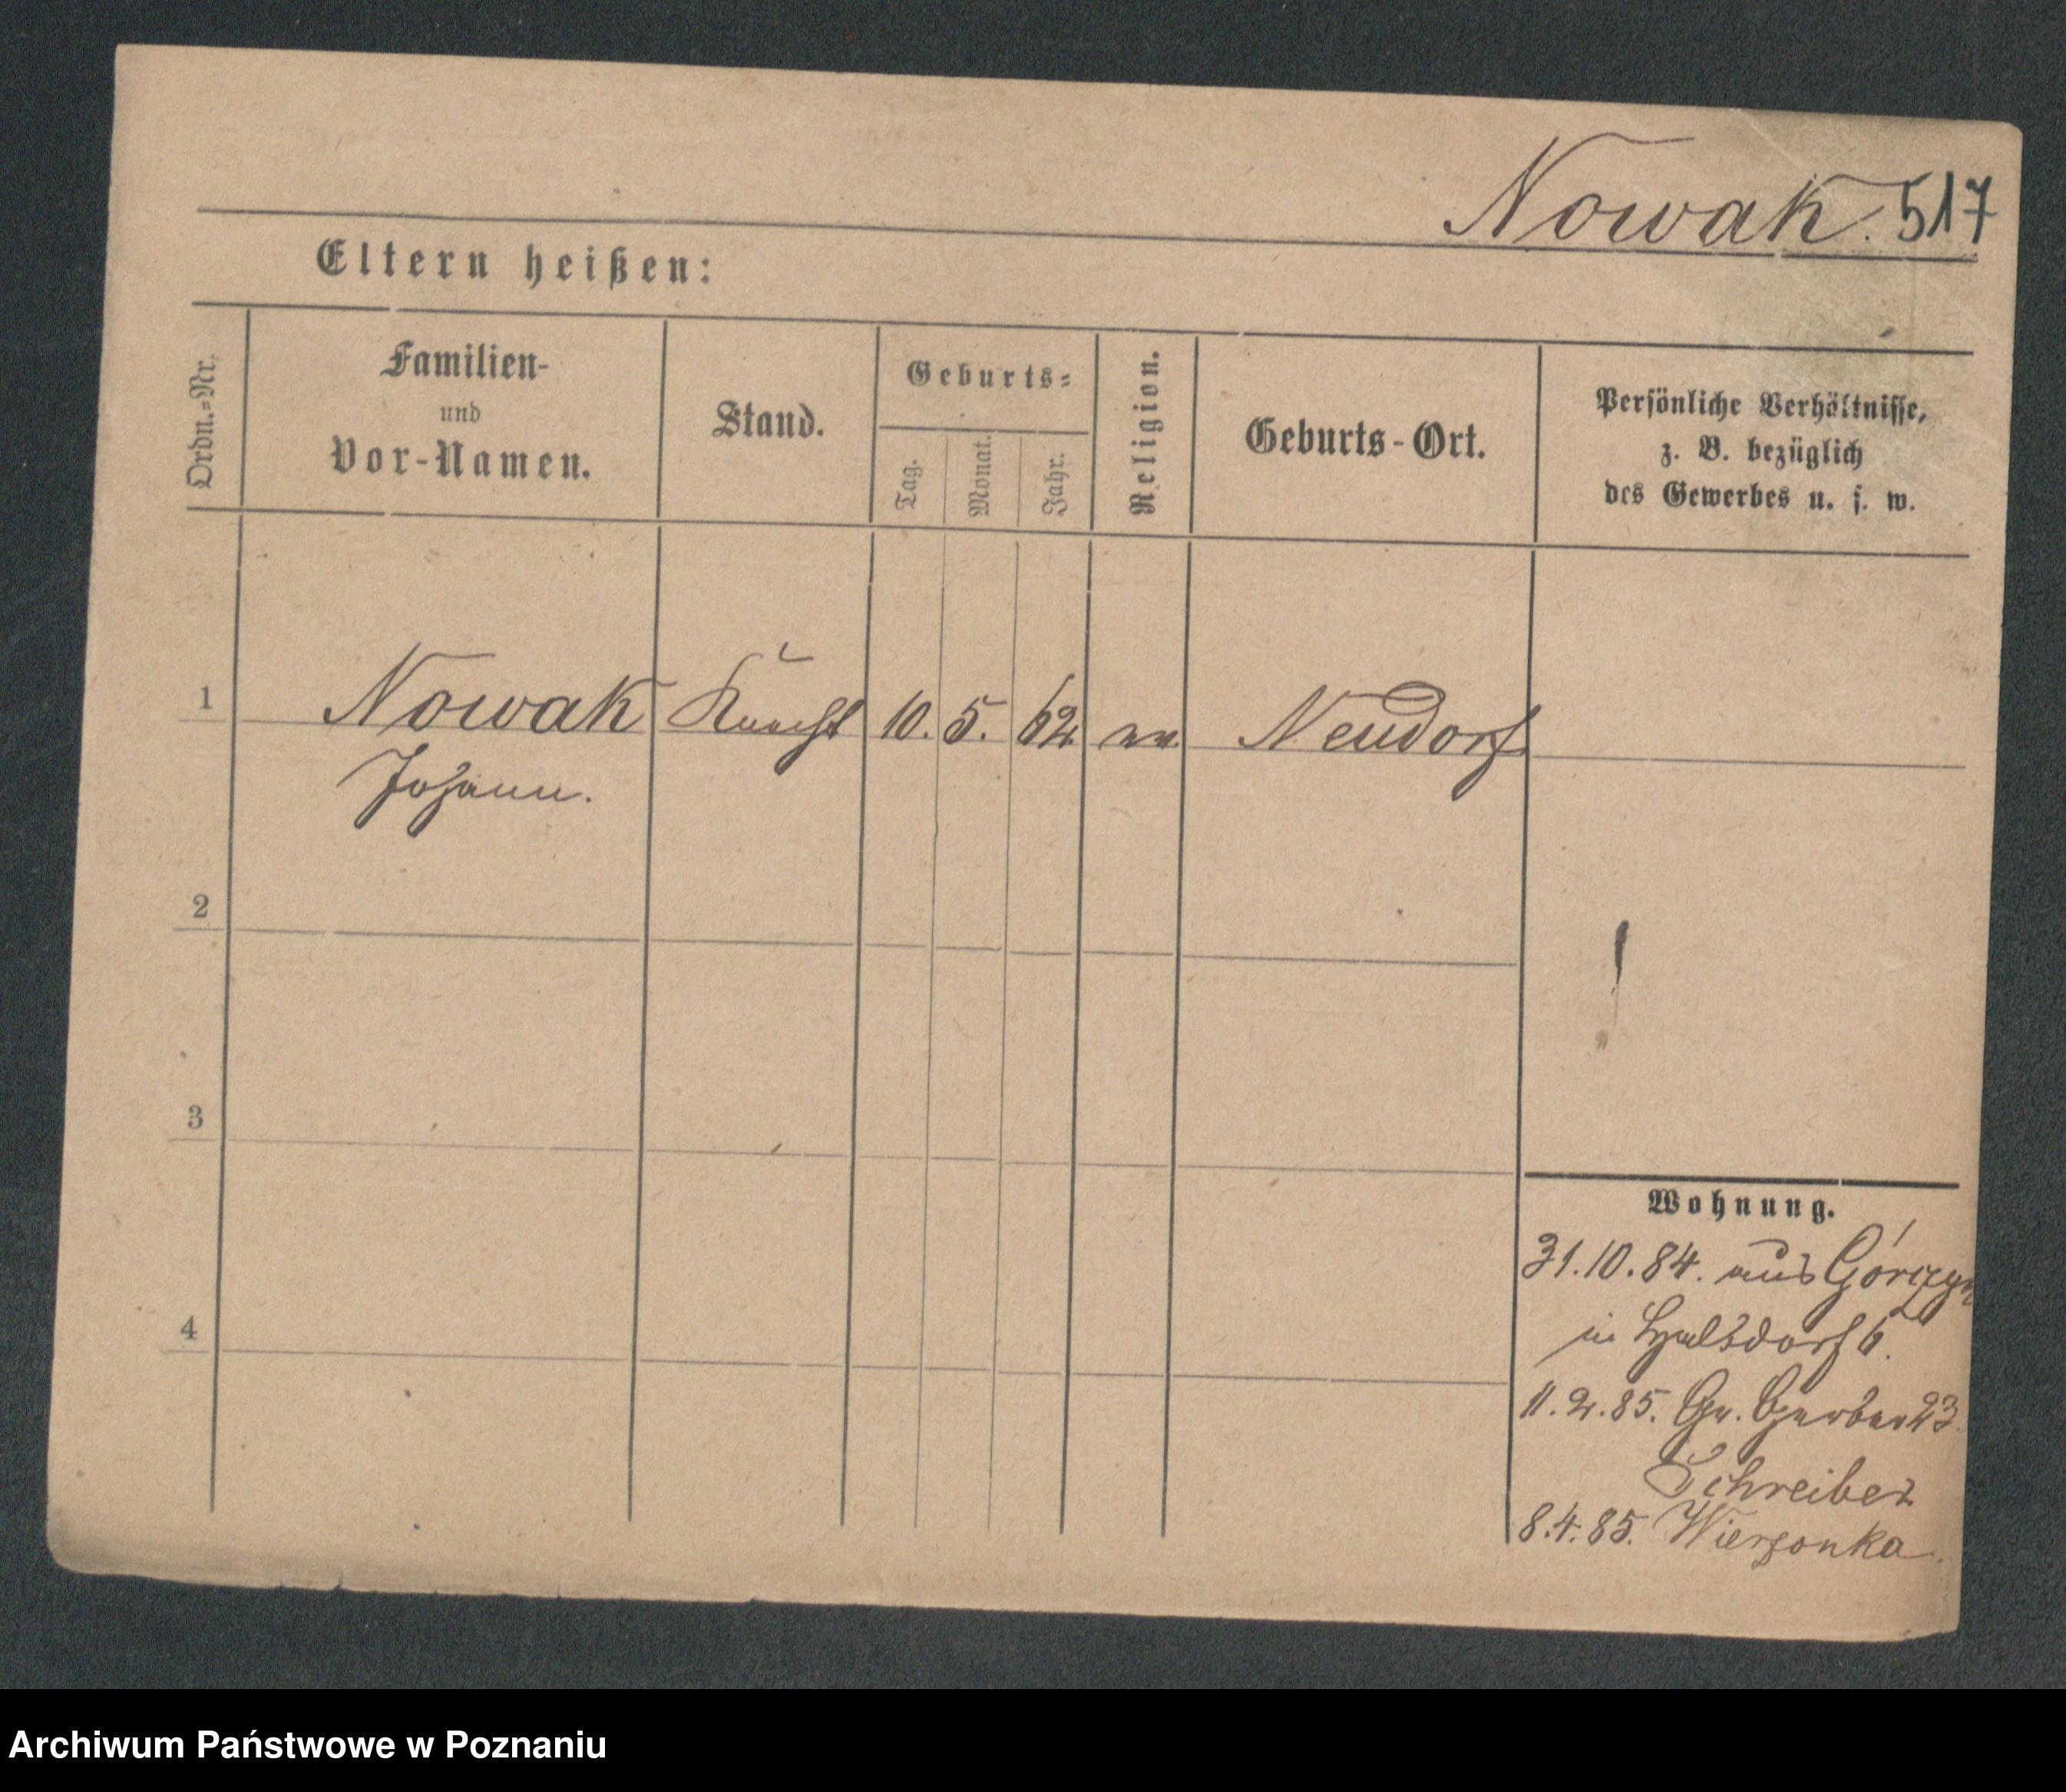 Nowak. 517
Eltern heißen:
Ordn.=Nr.
Familien-
und
Vor-Namen.
Stand.
Geburts=
Tag.
Monat.
Jahr.
Religion.
Geburts-Ort.
Persönliche Verhältnisse,
z. B. bezüglich
des Gewerbes u. s. w.
1 Nowak Knecht 10. 5. 62 Neudorf
Johann.
2
3
4
Wohnung.
31.10.84. aus Górczyn
in 6.
11.2.85. Gr. Gerber 23
Schreiber
8.4.85. Wierzonka.
Archiwum Państwowe w Poznaniu